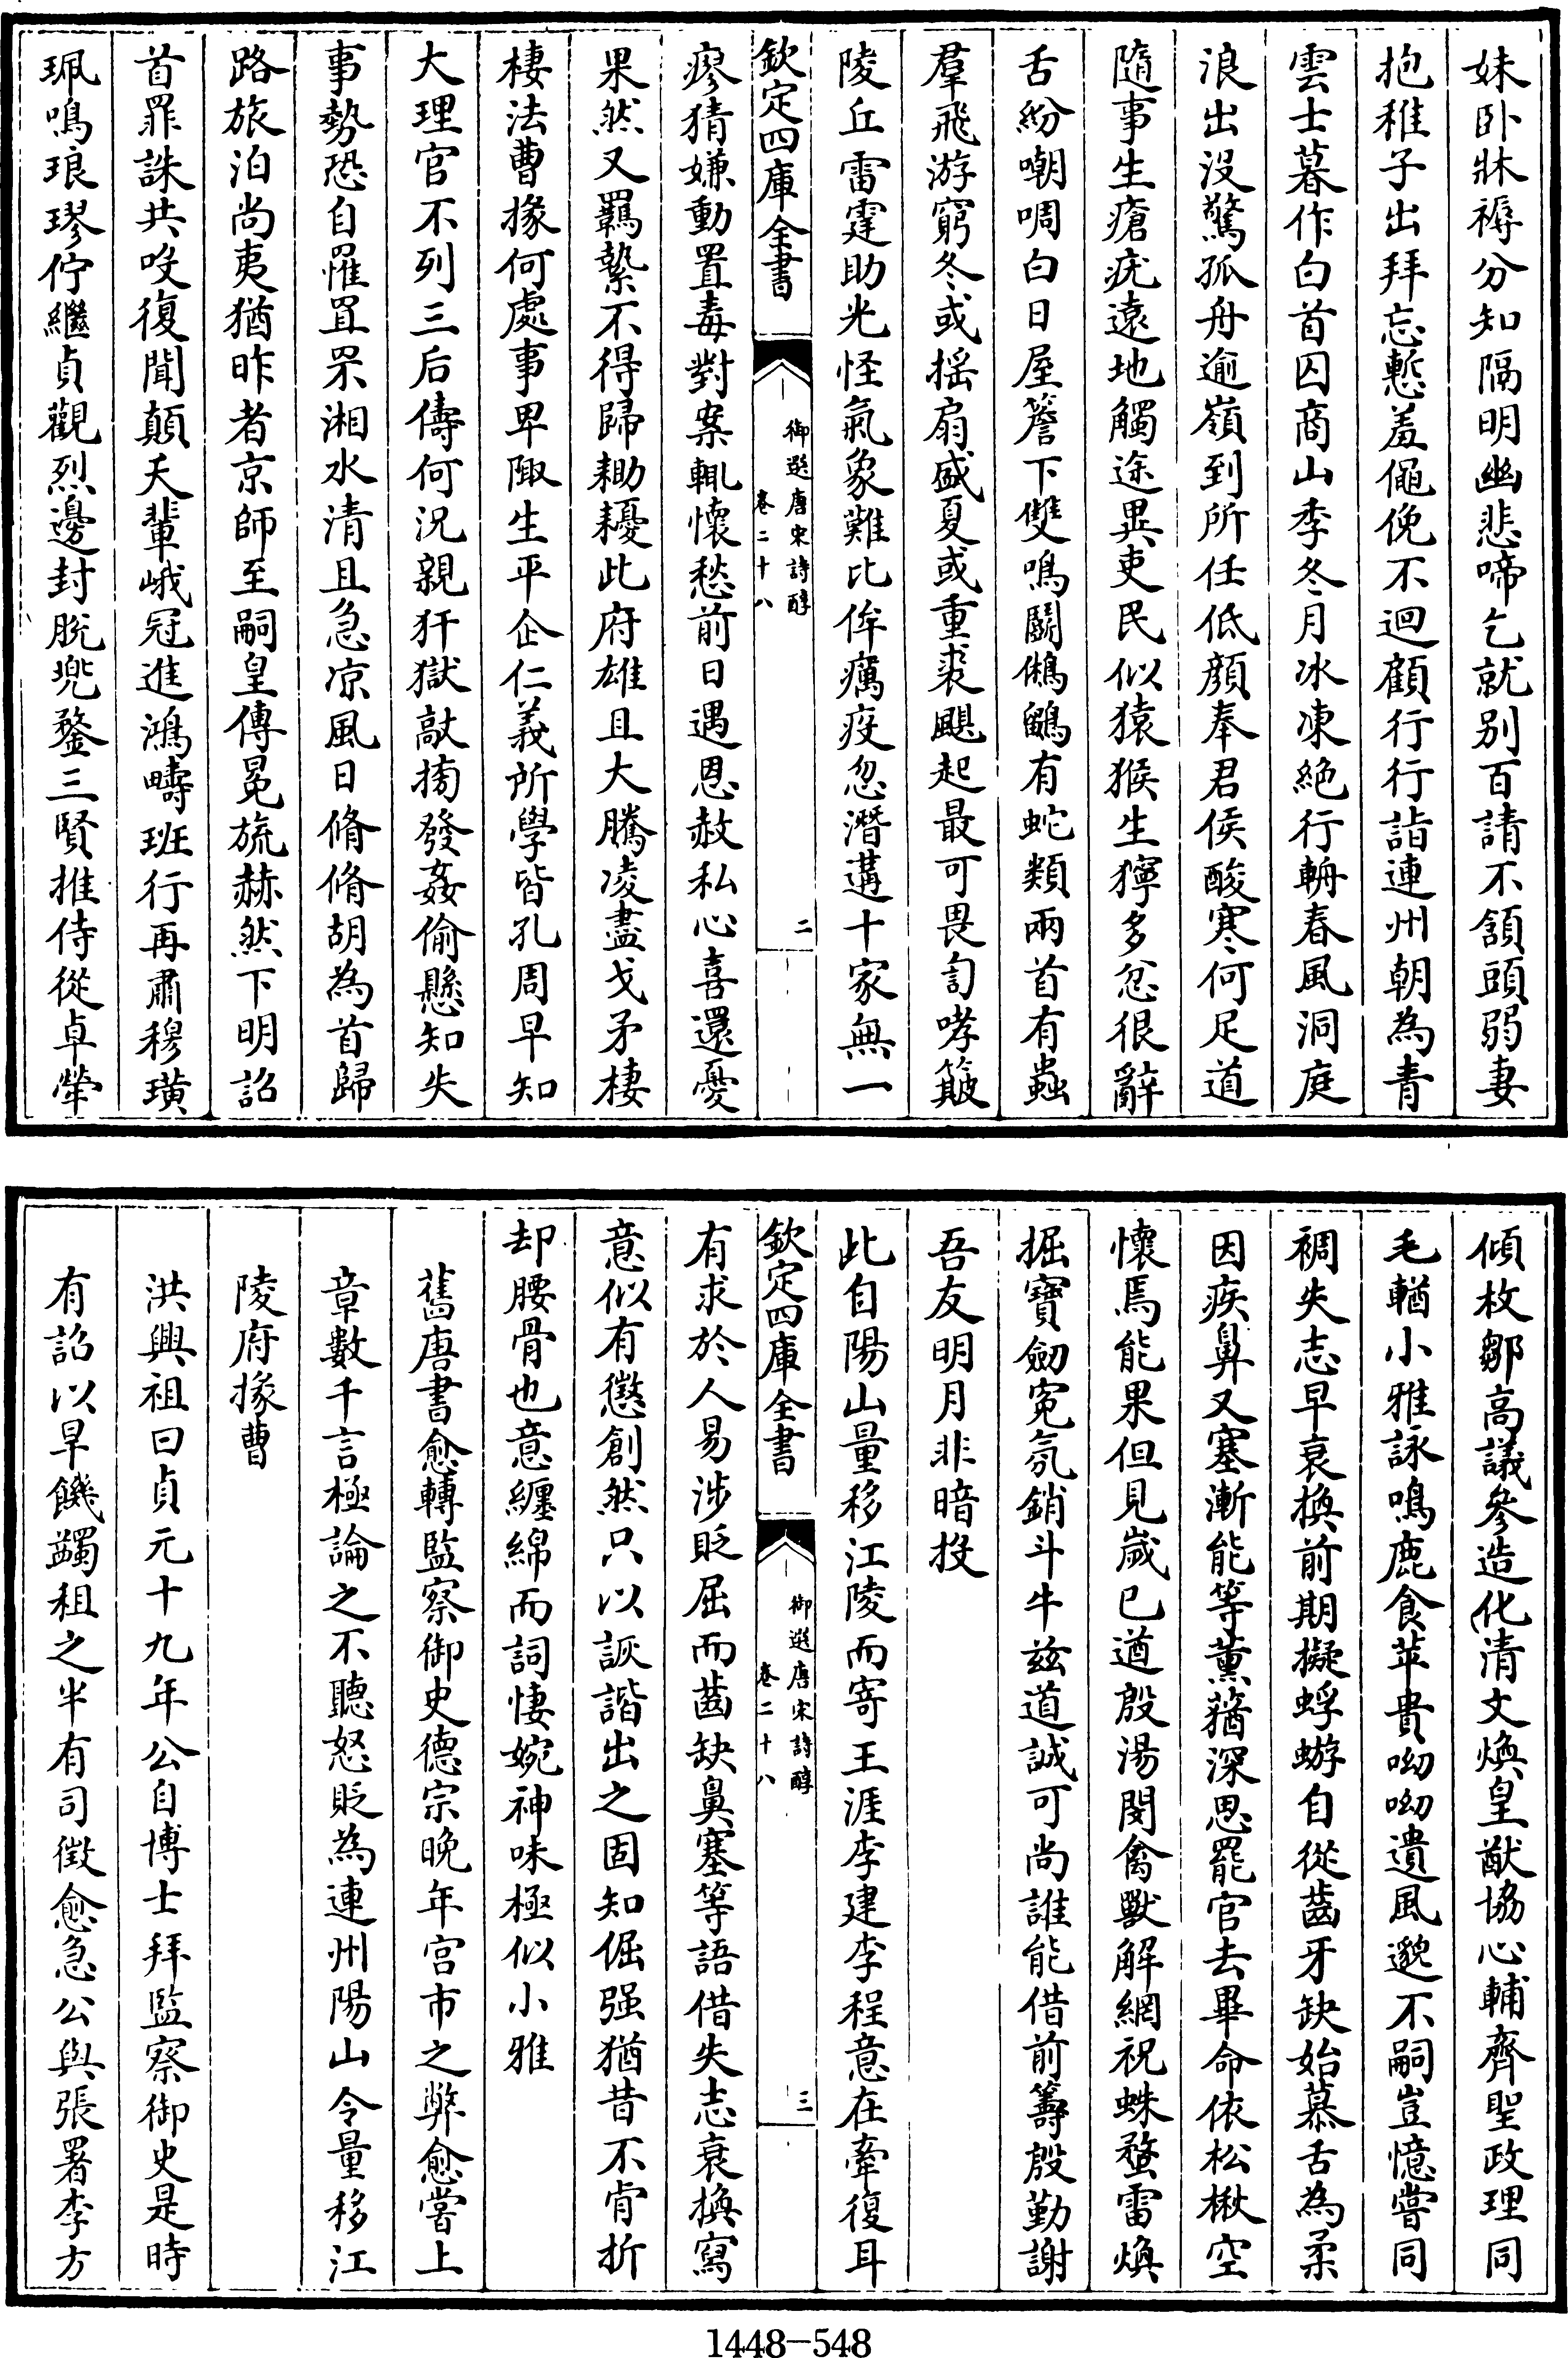 妹卧牀褥分知隔明幽悲啼乞就别百請不頷頭弱妻
抱稚子出拜忘慙羞僶俛不迴顧行行詣連州朝為青
雲士暮作白首囚商山季冬月冰凍絶行輈春風洞庭
浪出没驚孤舟逾嶺到所任低顔奉君侯酸寒何足道
隨事生瘡疣遠地觸途異吏民似猿猴生獰多忿很辭
舌紛嘲啁白日屋簷下雙鳴鬭鵂鶹有蛇類兩首有蟲
羣飛游窮冬或揺扇盛夏或重裘颶起最可畏訇哮簸
陵丘雷霆助光怪氣象難比侔癘疫忽潛遘十家無一
欽定四庫全書
御選唐宋詩醇
卷二十八
二
瘳猜嫌動置毒對案輒懷愁前日遇恩赦私心喜還憂
果然又羈縶不得歸耡耰此府雄且大騰凌盡戈矛棲
棲法曹掾何處事卑陬生平企仁義所學皆孔周早知
大理官不列三后儔何況親犴獄敲搒發姦偷懸知失
事勢恐自罹罝罘湘水清且急凉風日脩脩胡為首歸
路旅泊尚夷猶昨者京師至嗣皇傳冕旒赫然下明詔
首罪誅共吺復聞顛夭輩峨冠進鴻疇班行再肅穆璜
珮鳴琅璆佇繼貞觀烈邊封脱兜鍪三賢推侍從卓犖
傾枚鄒高議參造化清文煥皇猷協心輔齊聖政理同
毛輶小雅詠鳴鹿食苹貴呦呦遺風邈不嗣豈憶嘗同
裯失志早衰換前期擬蜉蝣自從齒牙缺始慕舌為柔
因疾鼻又塞漸能等薰蕕深思罷官去畢命依松楸空
懷焉能果但見歲已遒殷湯閔禽獸解網祝蛛蝥雷煥
掘寶劒寃氛銷斗牛兹道誠可尚誰能借前籌殷勤謝
吾友明月非暗投
此自陽山量移江陵而寄王涯李建李程意在牽復耳
欽定四庫全書
御選唐宋詩醇
卷二十八
三
有求於人易涉貶屈而齒缺鼻塞等語借失志衰換寫
意似有懲創然只以詼諧出之固知倔强猶昔不肯折
却腰骨也意纏綿而詞悽婉神味極似小雅
舊唐書愈轉監察御史德宗晚年宫市之弊愈嘗上
章數千言極論之不聽怒貶為連州陽山令量移江
陵府掾曹
洪興祖曰貞元十九年公自博士拜監察御史是時
有詔以旱饑蠲租之半有司徵愈急公與張署李方
1448-548